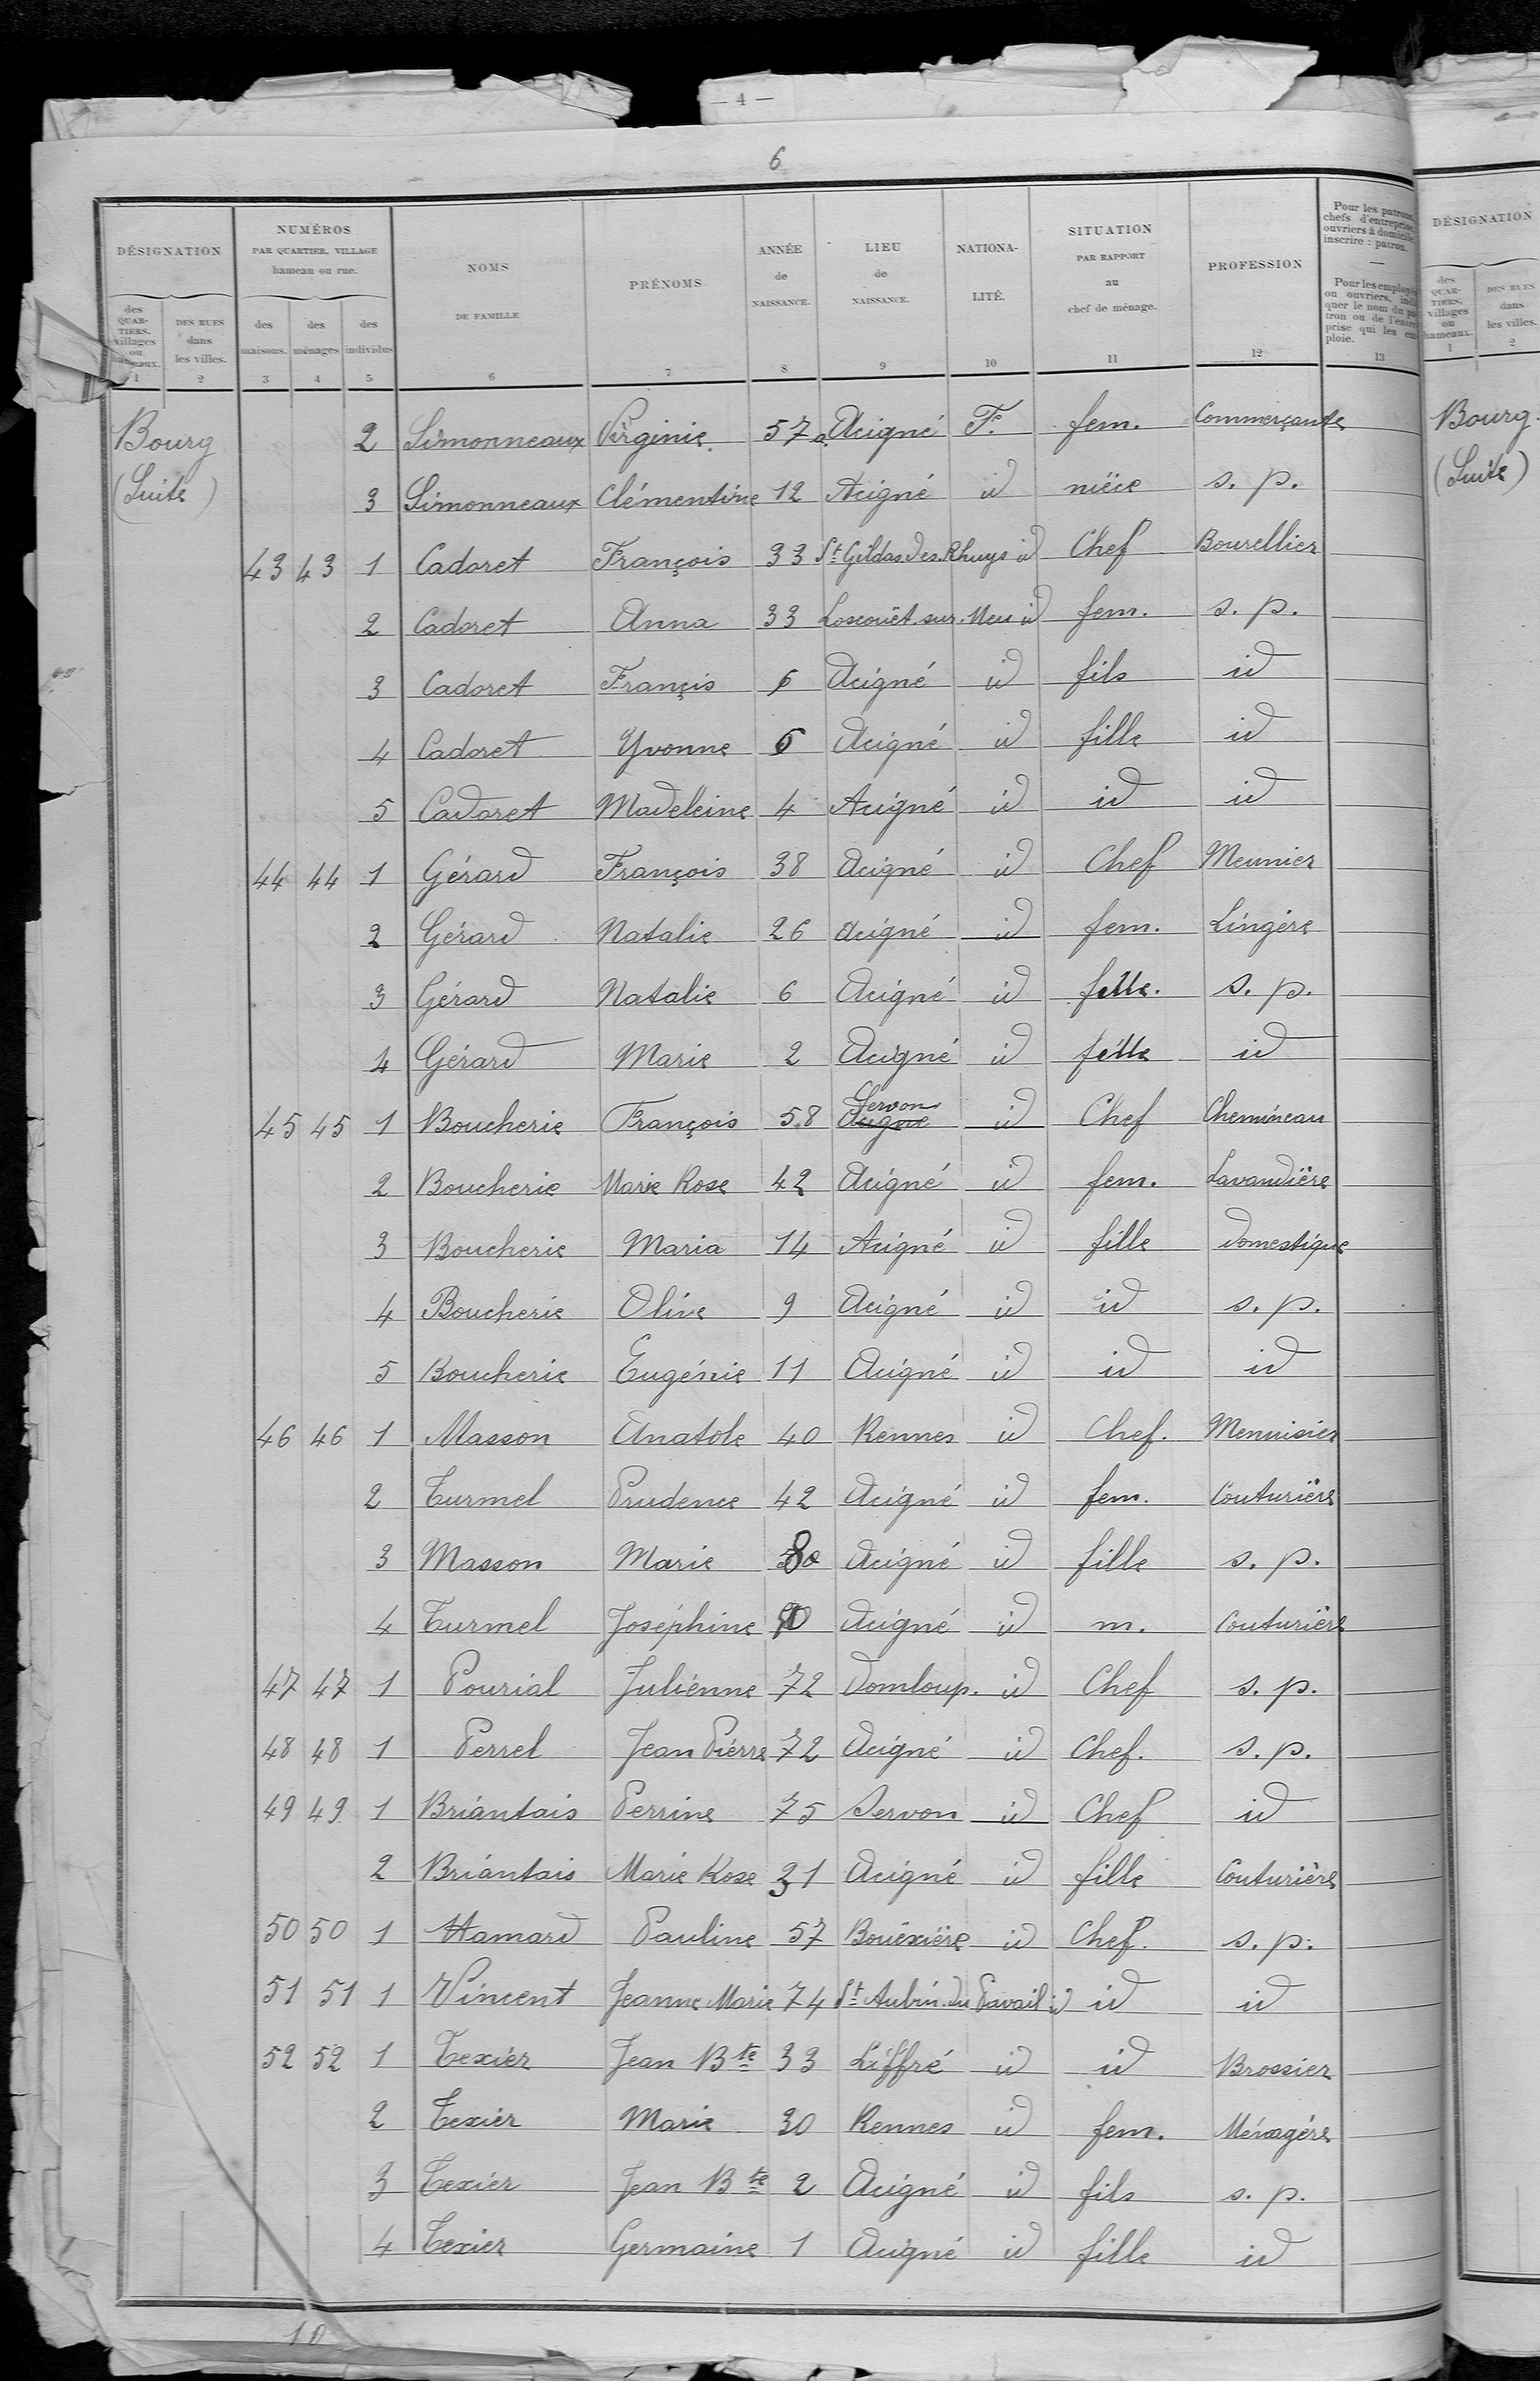 — 4 —
6
DÉSIGNATION
des QUARTIERS, villages ou hameaux.
1
DES RUES dans les villes.
2
NUMÉROS
PAR QUARTIER, VILLAGE
hameau ou rue.
des maisons.
3
des ménages
4
des individus
5
NOMS
DE FAMILLE
6
PRÉNOMS
7
ANNÉE
de
NAISSANCE.
8
LIEU
de
NAISSANCE.
9
NATIONA-
LITÉ.
10
SITUATION
PAR RAPPORT
au
chef de ménage.
11
PROFESSION
12
Pour les patrons,
chefs d'entreprise,
ouvriers à domicile,
inscrire : patron.
—
Pour les employés
ou ouvriers, indi
quer le nom du pa
tron ou de l'entre
prise qui les em
ploie.
13
Bourg 2 Simonneaux Virginie 57 a Acigné F. fem. Commerçante
(Suite) 3 Simonneaux Clémentine 12 Acigné id nièce s. p.
43 43 1 Cadoret François 33 St Gildas des Rhuys id Chef Bourellier
2 Cadoret Anna 33 Loscouët.sur.Meu id fem. s. p.
3 Cadoret Françis 6 Acigné id fils id
4 Cadoret Yvonne 6 Acigné id fille id
5 Cadoret Madeleine 4 Acigné id id id
44 44 1 Gérard François 38 Acigné id Chef Meunier
2 Gérard Natalie 26 Acigné id fem. Lingère
3 Gérard Natalie 6 Acigné id fille. s. p.
4 Gérard Marie 2 Acigné id fille id
45 45 1 Boucherie François 58 Acigné Servon id Chef Chemineau
2 Boucherie Marie Rose 42 Acigné id fem. Lavandière
3 Boucherie Maria 14 Acigné id fille domestique
4 Boucherie Olive 9 Acigné id id s. p.
5 Boucherie Eugénie 11 Acigné id id id
46 46 1 Masson Anatole 40 Rennes id Chef. Menuisier
2 Turmel Prudence 42 Acigné id fem. Couturière
3 Masson Marie Acigné id fille s. p.
4 Turmel Joséphine Acigné id m. Couturière
47 47 1 Pourial Julienne 72 Domloup. id Chef s. p.
48 48 1 Perrel Jean Pierre 72 Acigné id Chef. s. p.
49 49 1 Briantais Perrine 75 Servon id Chef id
2 Briantais Marie Rose 31 Acigné id fille Couturière
50 50 1 Hamard Pauline 57 Bouëxière id Chef. s. p.
51 51 1 Vincent Jeanne Marie 74 St Aubin.du Pavail id id id
52 52 1 Texier Jean Bte 33 Liffré id id Brossier
2 Texier Marie 30 Rennes id fem. Ménagère
3 Texier Jean Bte 2 Acigné id fils s. p.
4 Texier Germaine 1 Acigné id fille id
10
DÉSIGNATION
des QUARTIERS, villages ou hameaux.
1
DES RUES dans les villes.
2
Bourg.
(Suite)